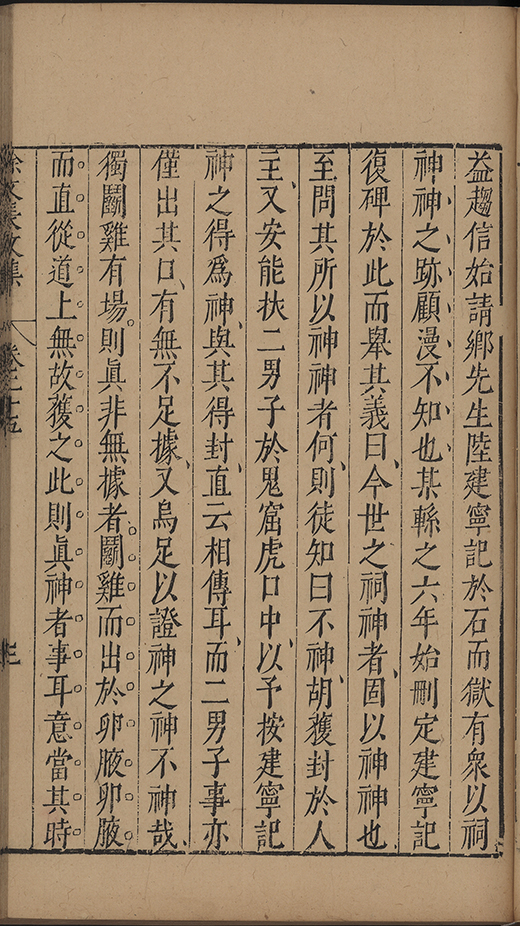 益趨信始請鄉先生陸建寧記於石而獄有衆以祠
神神之跡顧漫不知也某繇之六年始刪定建寧記
復碑於此而舉其義曰今世之祠神者固以神神也
至問其所以神神者何則徒知曰不神胡獲封於人
主又安能扶二男子於鬼窟虎口中以予按建寧記
神之得爲神與其得封直云相傳耳而二男子事亦
僅出其口有無不足據又烏足以證神之神不神哉
獨鬭雞有場則眞非無據者鬭雞而出於卵腋卵腋
而直從道上無故獲之此則眞神者事耳意當其時
徐文長文集 卷二十五